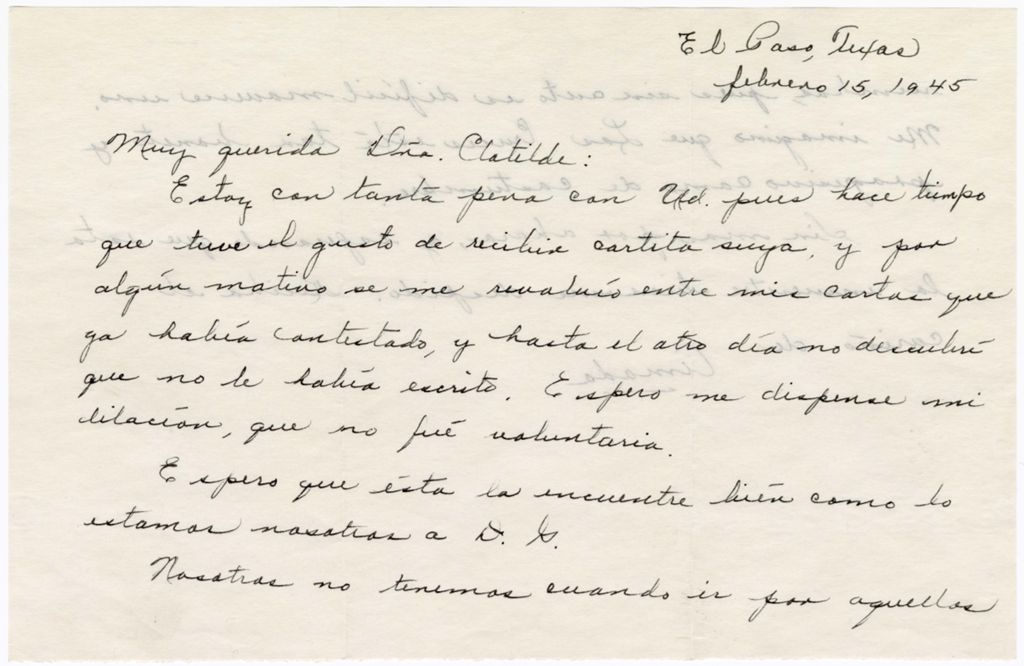 El Paso, Texas
febrero 15, 1945
Muy querida Dña. Clotilde:
Estoy con tanta pena con Ud. pues hace tiempo
que tuve el gusto de recibir cartita suya, y por
algún motivo se me revolvió entre mis cartas que
ya había contestado, y hasta el otro día no descubrí
que no le había escrito. Espero me dispense mi
dilación, que no fué voluntaria.
Espero que ésta la encuentre bién como lo
estamos nosotros a D. G.
Nosotros no tenemos cuando ir por aquellos